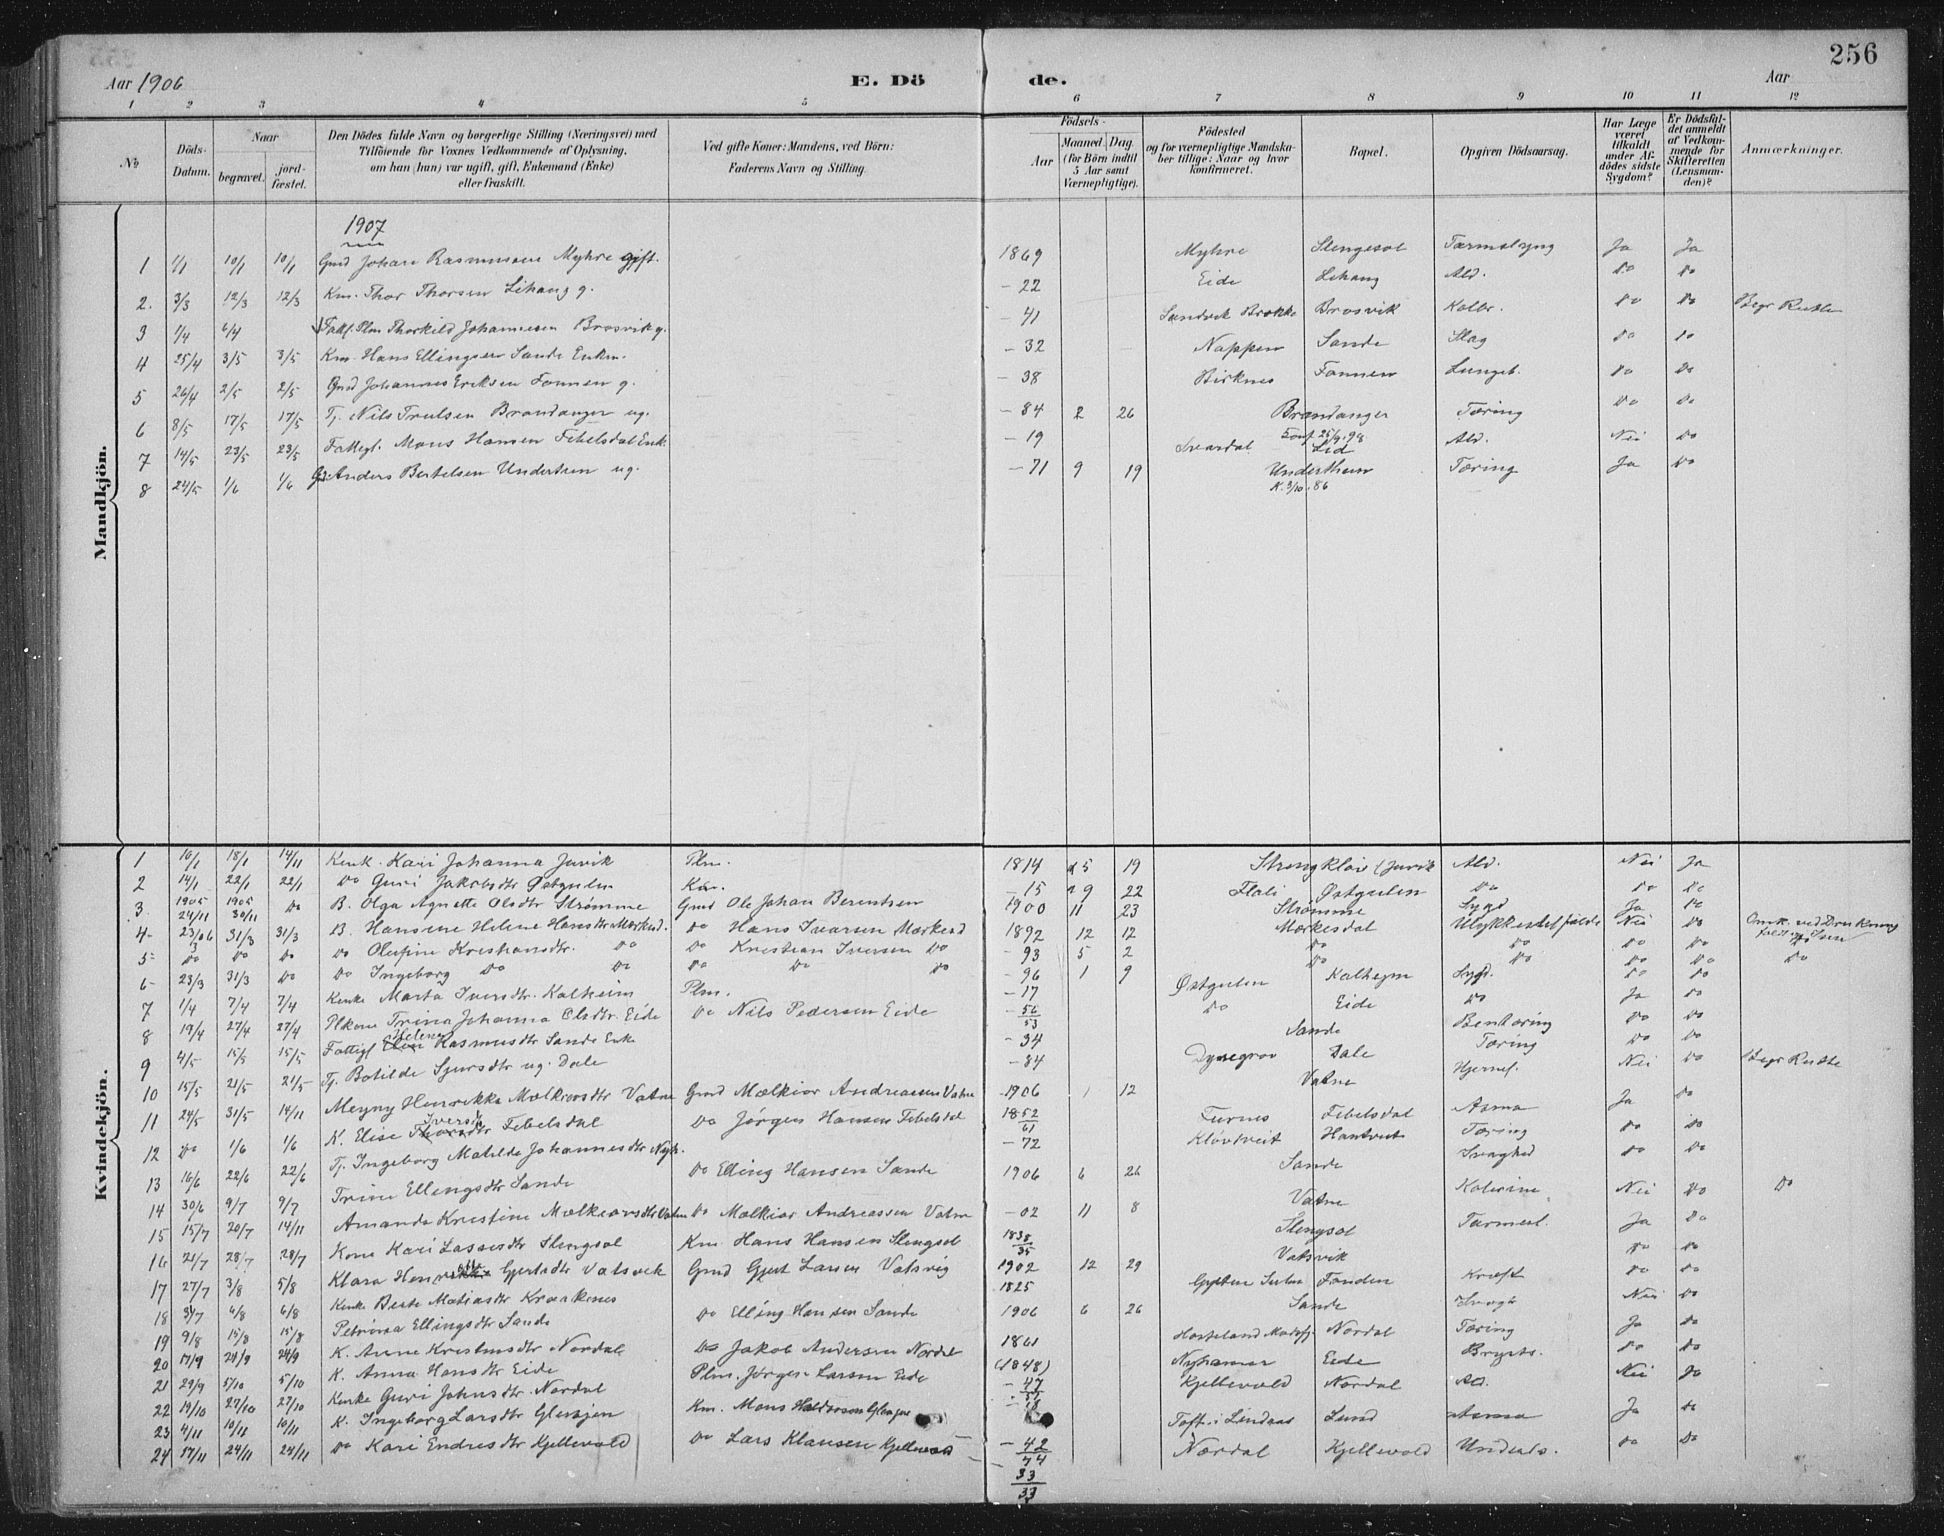 256
Aar 1906
E. Dö
de.
Aar
1 2 3 4 5 6 7 8 9 10 11 12
No
Döds-
Datum.
Naar
begravet.
jord-
fæstet.
Den Dödes fulde Navn og borgerlige Stilling (Næringsvei) med
Tilföiende for Voxnes Vedkommende af Oplysning,
om han (hun) var ugift, gift, Enkemand (Enke)
eller fraskilt.
Ved gifte Koner: Mandens, ved Börn:
Faderens Navn og Stilling.
Födsels-
Aar
Maaned. Dag.
(for Börn indtil
5 Aar samt
Værnepligtige).
Födested
og for værnepligtige Mandska-
ber tillige: Naar og hvor
konfirmeret.
Bopæl.
Opgiven Dödsaarsag.
Har Læge
været
tilkaldt
under Af-
dödes sidste
Sygdom?
Er Dödsfal-
det anmeldt
af Vedkom-
mende for
Skifteretten
(Lensman-
den)?
Anmærkninger.
Mandkjön.
1907
1 1/1 10/1 10/1 Gmd Johan Rasmussen Myhre gift. 1869 Myhre Slengesol Tarmslyng Ja Ja
2. 3/3 12/3 12/3 Km. Thor Thorsen Lihaug g. - 22 Eide Lihaug Ald. Do Do
3 1/4 6/4 Fattl. Plm Thorkild Johannesen Brosvik g. - 41 Sandvik Brekke Brosvik Kolbr. Do Do Begr Rutle
4 25/4 3/5 3/5 Km. Hans Ellingsen Sande Enkm. - 32 Nappen Sande Slag Do Do
5 26/4 2/5 2/5 Gmd Johannes Eriksen Fonnen g. - 38 Birknes Fonnen Lungeb. Do Do
6 8/5 17/5 17/5 Tj. Nils Trulsen Brandanger ug. - 84 2 26 Brandanger Tæring Do Do
Konf 25/9. 98
7 14/5 23/5 23/5 Fattigl. Mons Hansen Febelsdal Enk. - 19 Svardal Lid Ald. Nei Do
8 24/5 1/6 1/6 Gs. Anders Bertelsen Undertun ug. - 71 9 19 Underthun Tæring Ja Do
K. 3/10. 86
Kvindekjön.
1 10/1 18/1 14/11 Kenk. Kari Johanna Juvik Plm. 1814 5 19 Juvik Ald. Nei Ja
2 14/1 22/1 22/1 Do Guri Jakobsdtr Østgulen Km. - 15 9 22 Flali Østgulen Do Do Do
3. 1905 24/11 1905 30/11 Do B. Olga Agnette Olsdtr Strømme Gmd Ole Johan Berentsen 1900 11 23 Strømme Sygd Ja Do
4 23/06 31/3 31/3 B. Hansine Helene Hansdtr Mørkesd. Do Hans Iversen Mørkesd 1892 12 12 Mørkesdal Ulykkestilfælde Nei Do Omk. ved Drukning
5 Do Do Do Do Olufine Kristiansdtr. Do Do Kristian Iversen Do - 93 5 2 Do Do Do Do Do
Do Ingeborg Do Do Do Do Do - 96 1 9 Do Do Do Do
6 23/3 31/3 Do Kenke Marta Iversdtr. Kalheim Plm. - 17 Østgulen Kalhejm Sygd. Do Do
7 1/4 7/4 7/4 Plkone Trina Johanna Olsdtr. Eide Do Nils Pedersen Eide - 56/53 Do Eide Do Ja Do
8 19/4 27/4 27/4 Fattigl Helene Rasmusdtr Sande Enke - 34 Sande Bentæring Do Do
9 4/5 15/5 15/5 Tj. Botilde Sjursdtr ug. Dale - 84 Dyregrov Dale Tæring Do Do
10 15/5 21/5 21/5 Meyny Henrikke Mælkiorsdtr Vatne Gmd Mælkior Andreassen Vatne 1906 1 12 Vatne Hjernef. Nei Do Begr Rutle
11 24/5 31/5 14/11 K. Elise Iversdtr Febelsdal Do Jørgen Hansen Febelsdal 1852/61 Furnes Febelsdal Asma Ja Do
12 Do 1/6 1/6 Tj. Ingeborg Matilde Johannesdtr Nyh. - 72 Kløvtveit Hantveit Tæring Do Do
13 16/6 22/6 22/6 Trine Ellingsdtr Sande Do Elling Hansen Sande 1906 6 26 Sande Svaghed Do Do
14 30/6 9/7 9/7 Amanda Kristine Mælkiorsdtr Vatne Do Mælkior Andreassen Vatne - 02 11 8 Vatne Kolerine Nei Do Do
15 15/7 20/7 14/11 Kone Kari Lassesdtr Slengsol Km. Hans Hansen Slengsol 1838/35 Slengsol Tarmesl. Ja Do
16 21/7 28/7 28/7 Klara Gjertsdtr Vatsvik Gmd Gjert Larsen Vatsvig 1902 12 29 Vatsvik Do Do
17 27/7 3/8 5/8 Kenke Berte Matiasdtr Kraakenes 1825 Fonden Kræft Do Do
18 3/7 6/8 6/8 Petrina Ellingsdtr Sande Do Elling Hansen Sande 1906 6 26 Sande Svagh Nei Do
19 9/8 15/8 15/8 K. Anne Kristensdtr Nordal Do Jakob Andersen Nordal 1861 Nordal Tæring Ja Do
20 17/9 24/9 24/9 K. Anna Hansdtr Eide Plm. Jørgen Larsen Eide (1848) Nyhamar Eide Brysts. Do Do
21 29/9 5/10 5/10 Kenke Guri Johnsdtr Nordal - 47 Kjellevold Nordal Ald. Nei Ja
22 19/10 27/10 27/10 K. Ingeborg Larsdtr Glenjen Km. Mons Haldorsen Glenjen Toft i Lindaas Lund Asma Ja Do
23 4/11 10/12 10/11
24 17/11 24/11 24/11 Do Kari Endresdtr Kjellevold Do Lars Klausen Kjellevold - 42/74 Nordal Kjellevold Underls. Do Do
33/33